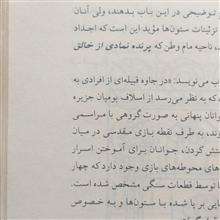 توضیحی در این باب بدهند، ولی آنان
تزئینات ستون‌ها مؤید این است که اجداد
، ناحیه مام وطن که پرنده نمادی از خالق
ب می نویسد: «در جاوه قبیله‌ای از افرادی به
که به نظر می‌رسد از اسلاف بومیان جزیره
وانان پنهانی به صورت گروهی با مراسمی
وند، به طرف نقطه بازی مقدسی در میان
ستش کردن، جوانان برای آموختن اسرار
های محوطه‌های بازی وجود دارد که چهار
با توسط قطعات سنگی مشخص شده است.
ایی بر پا شده با ستون‌ها و به خصوص